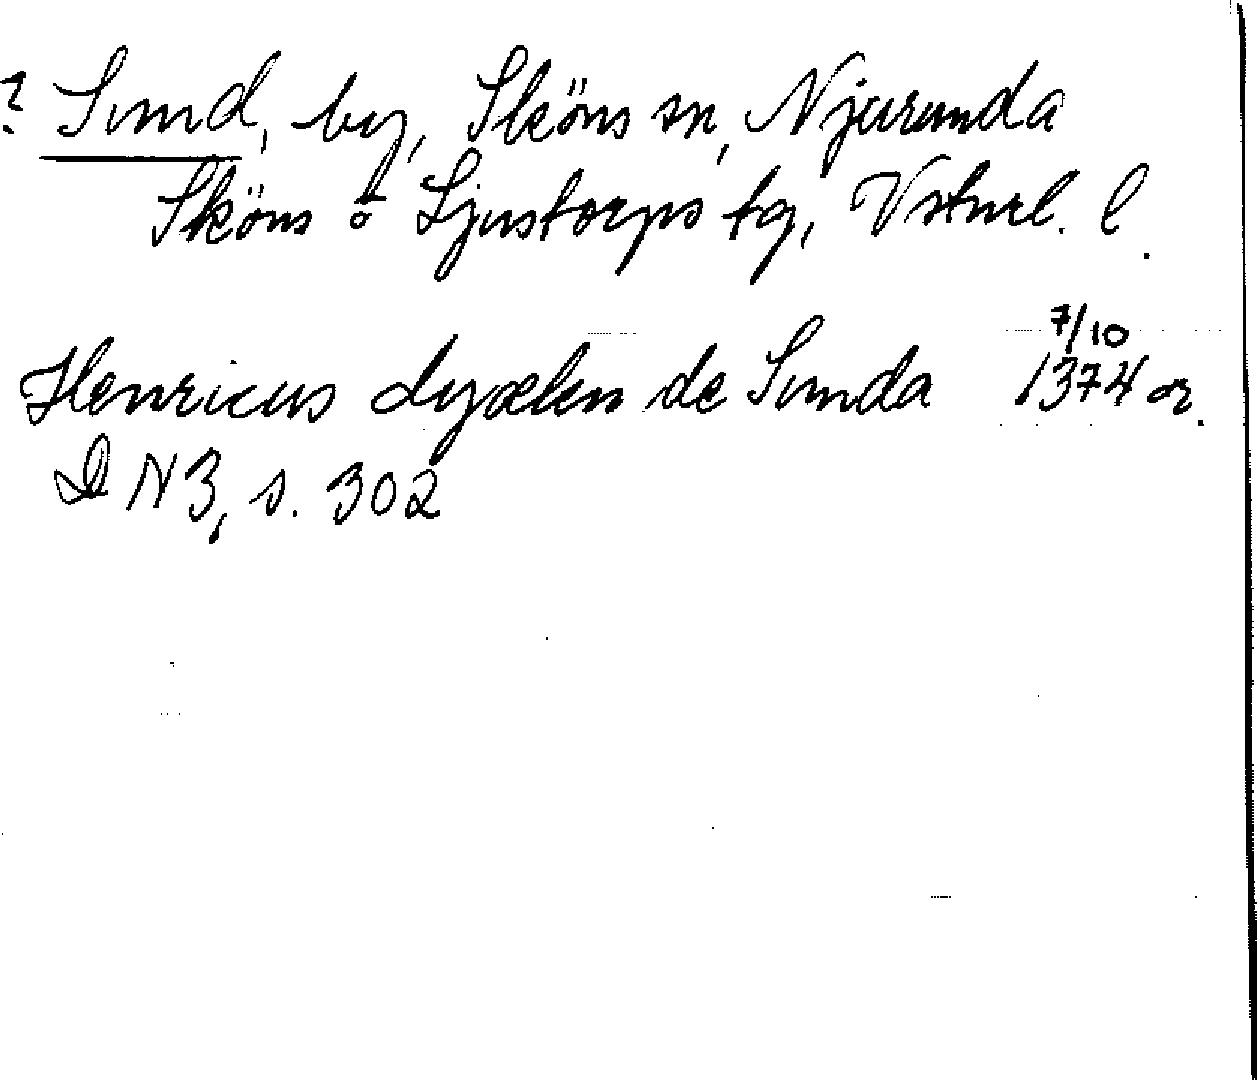 ? Sund, by, Sköns sn, Njurunda
Sköns o Ljustorps tg, Vstnrl. l.
7/10
Henricus dyækn de Sunda 1374 or.
D N 3, s. 302